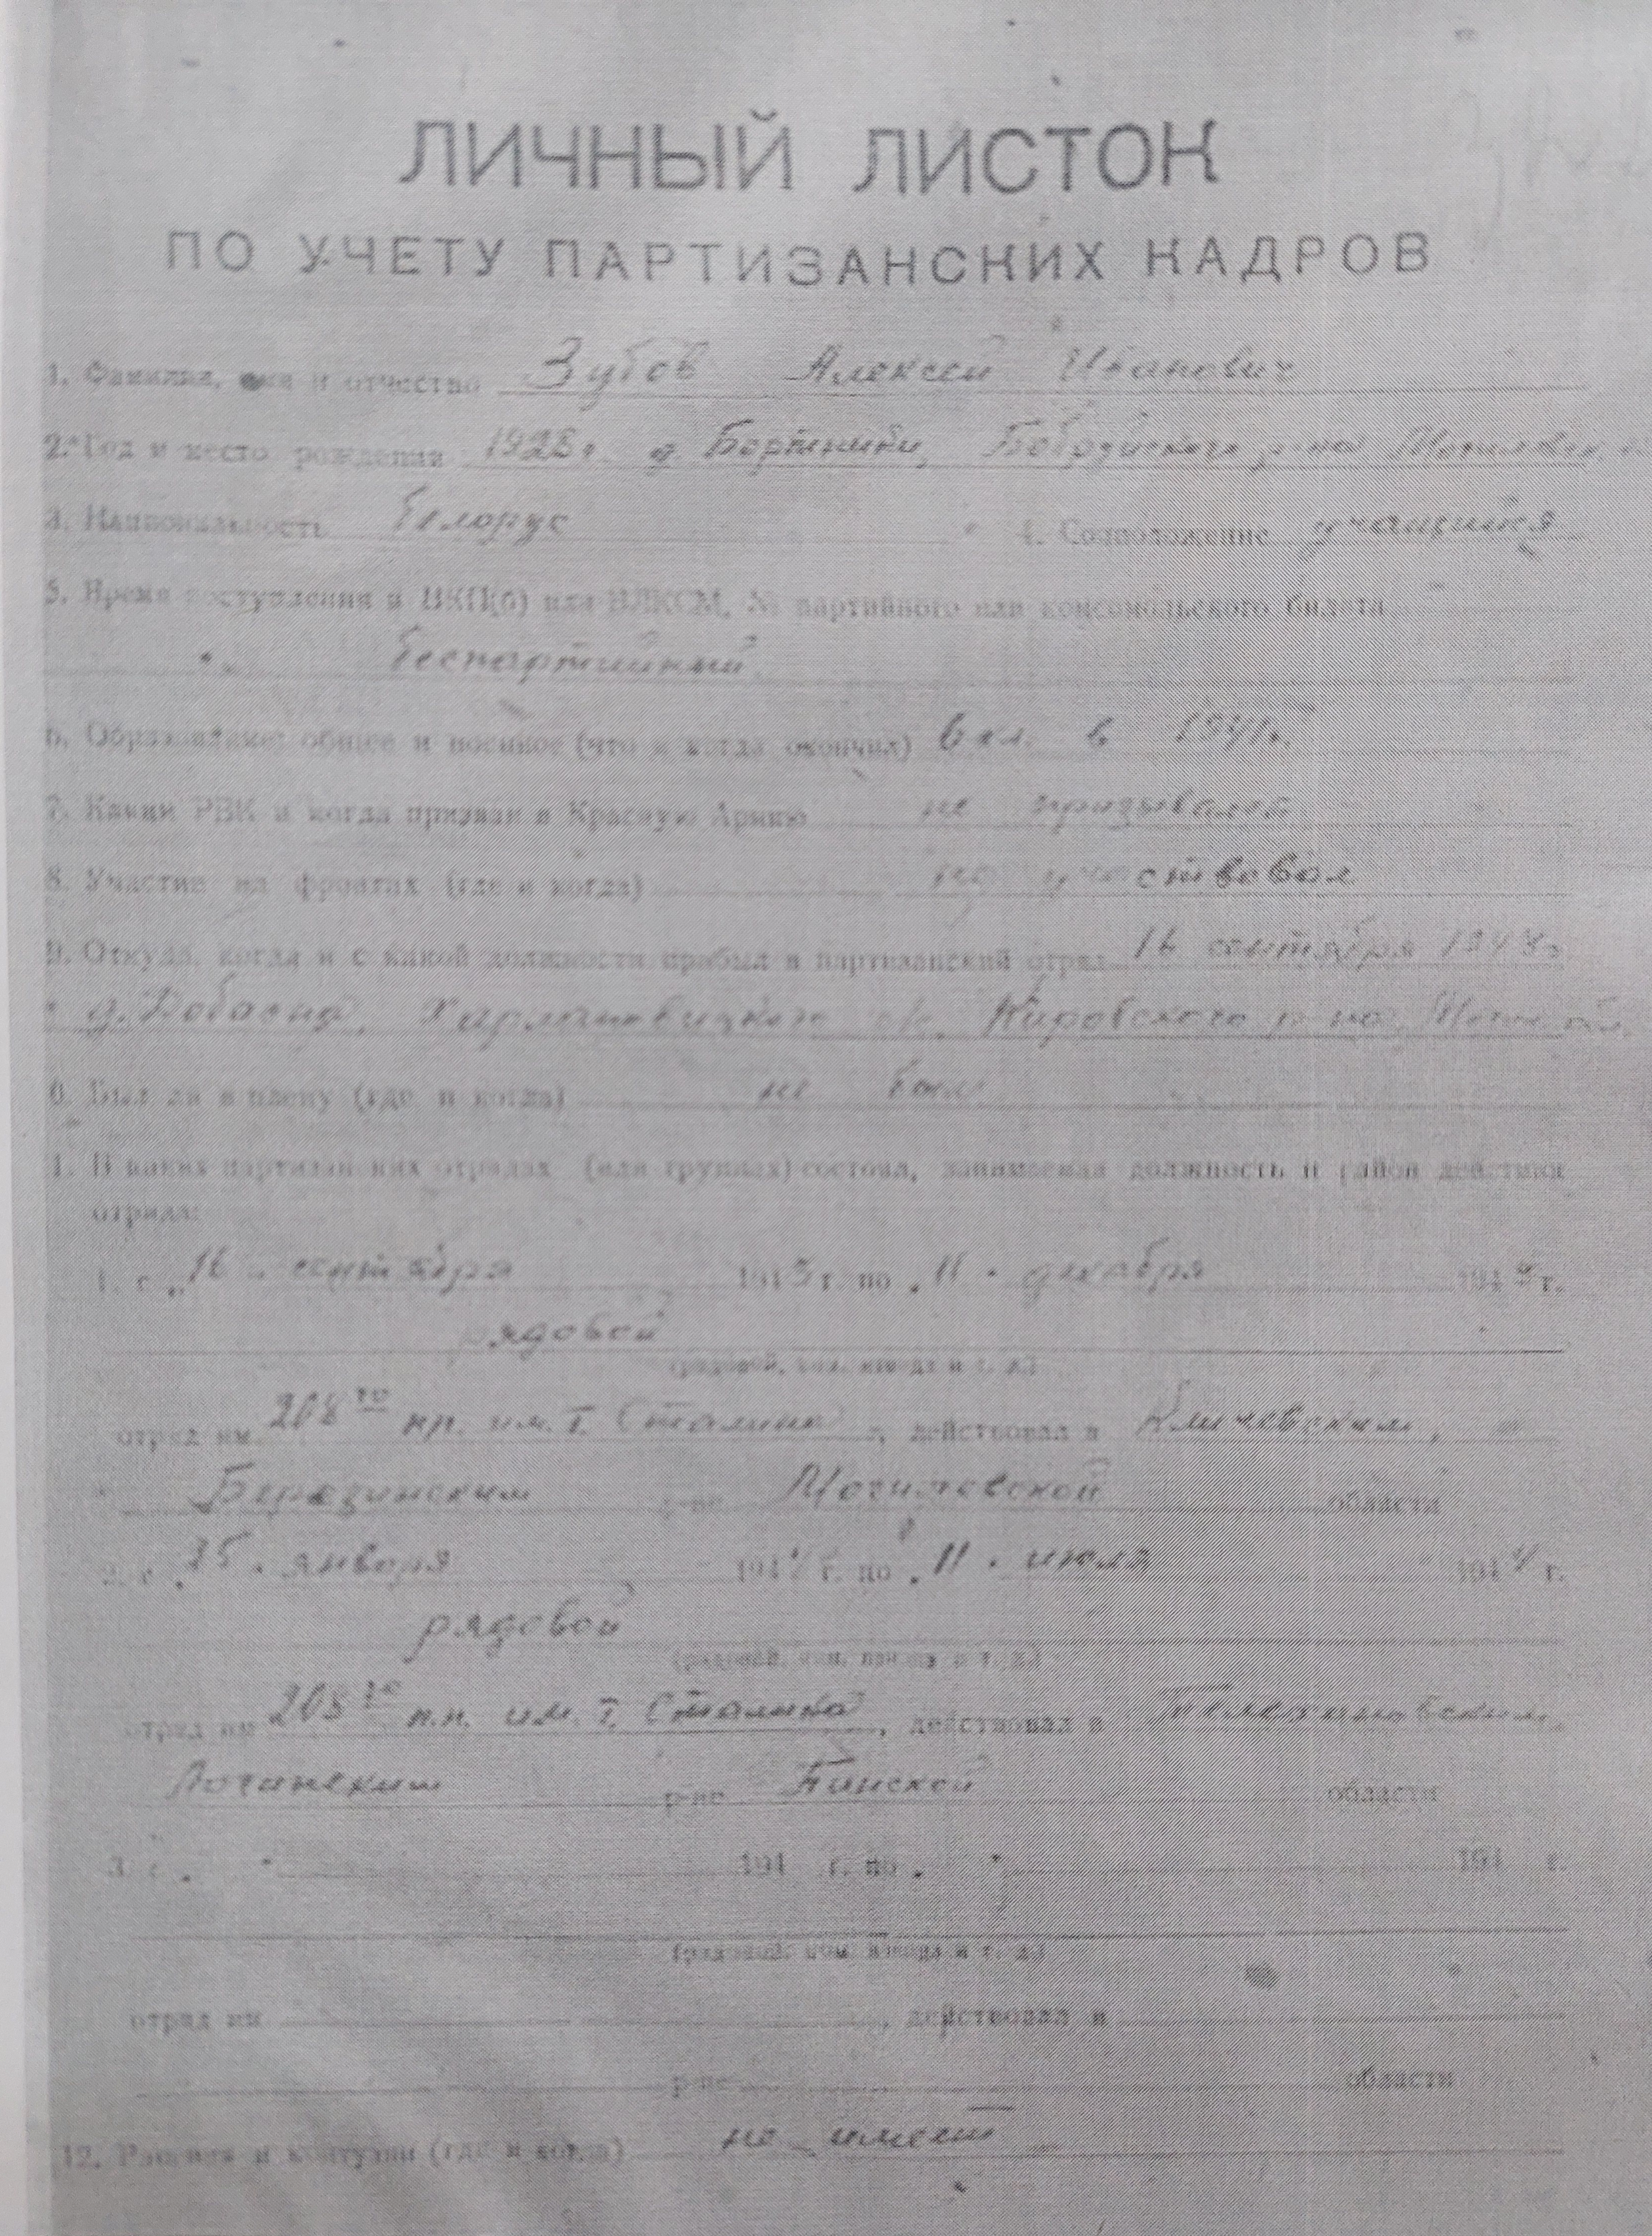 ЛИЧНЫЙ ЛИСТОК
ПО УЧЕТУ ПАРТИЗАНСКИХ КАДРОВ
1. Фамилия, имя и отчество Зубов Алексей Иванович
2. Год и место рождения 1928 г. д. Бортники, Бобруйского р-на
3. Национальность белорус 4. Соцположение учащийся
5. Время вступления в ВКП(б) или ВЛКСМ, № партийного или комсомольского билета
беспартийный
6. Образование: общее и военное (что и когда окончил) 6 кл. в 1941г.
7. Каким РВК и когда призван в Красную Армию не призывался
8. Участие на фронтах (где и когда) не участвовал
9. Откуда, когда и с какой должности прибыл в партизанский отряд 16 сентября 1943г
д. Добасна, с/с, Кировского р-на,
0. Был ли в плену (где и когда) не был
1. В каких партизанских отрядах (или группах) состоял, занимаемая должность и район действия
отряда:
1. с „16 " сентября 1943 г. по „11 " декабря 1943 г.
рядовой
(рядовой, ком. взвода и т. д.)
отряд им. 208го пп. им. т. Сталина, действовал в Кличевским,
Березинским р-не Могилевской области
2. с „ 15 " января 1944 г. по „11 " июля 1944 г.
рядовой
(рядовой, ком. взвода и т. д.)
отряд им 208го п.п. им. т. Сталина, действовал в Телехановским,
Логишеским р-не Пинской области
3. с „ " 194 г. по „ " 194 г.
(рядовой, ком. взвода и т. д.)
отряд им. , действовал в
р-не области
12. Ранения и контузии (где и когда) не имеет